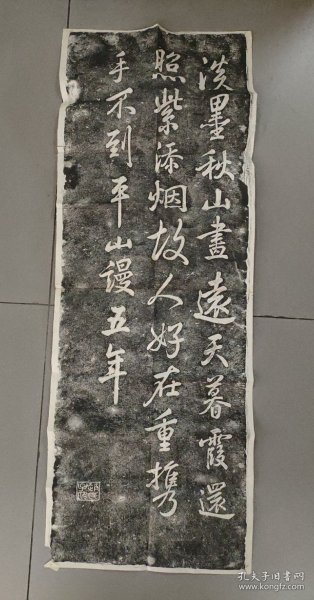 淡墨秋山畫遠天暮霞還
照紫添烟故人好在重携
手不到平山謾五年
孔夫子旧书网